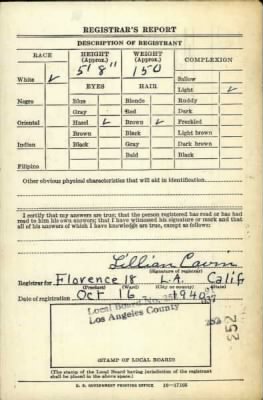 REGISTRAR'S REPORT
DESCRIPTION OF REGISTRANT
RACE HEIGHT (Approx.) WEIGHT (Approx.) COMPLEXION
5'8" 150
White ✓ Sallow
EYES HAIR Light ✓
Negro Blue Blonde Ruddy
Gray Red Dark
Oriental Hazel ✓ Brown ✓ Freckled
Brown Black Light brown
Indian Black Gray Dark brown
Bald Black
Filipino
Other obvious physical characteristics that will aid in identification
I certify that my answers are true; that the person registered has read or has had
read to him his own answers; that I have witnessed his signature or mark and that
all of his answers of which I have knowledge are true, except as follows:
Lillian
(Signature of registrar)
Registrar for Florence 18 L.A. Calif
(Precinct) (Ward) (City or county) (State)
Date of registration Oct 16 1940
Local Board No.
Los Angeles County
252
(STAMP OF LOCAL BOARD)
(The stamp of the Local Board having jurisdiction of the registrant
shall be placed in the above space.)
U. S. GOVERNMENT PRINTING OFFICE 16-17105